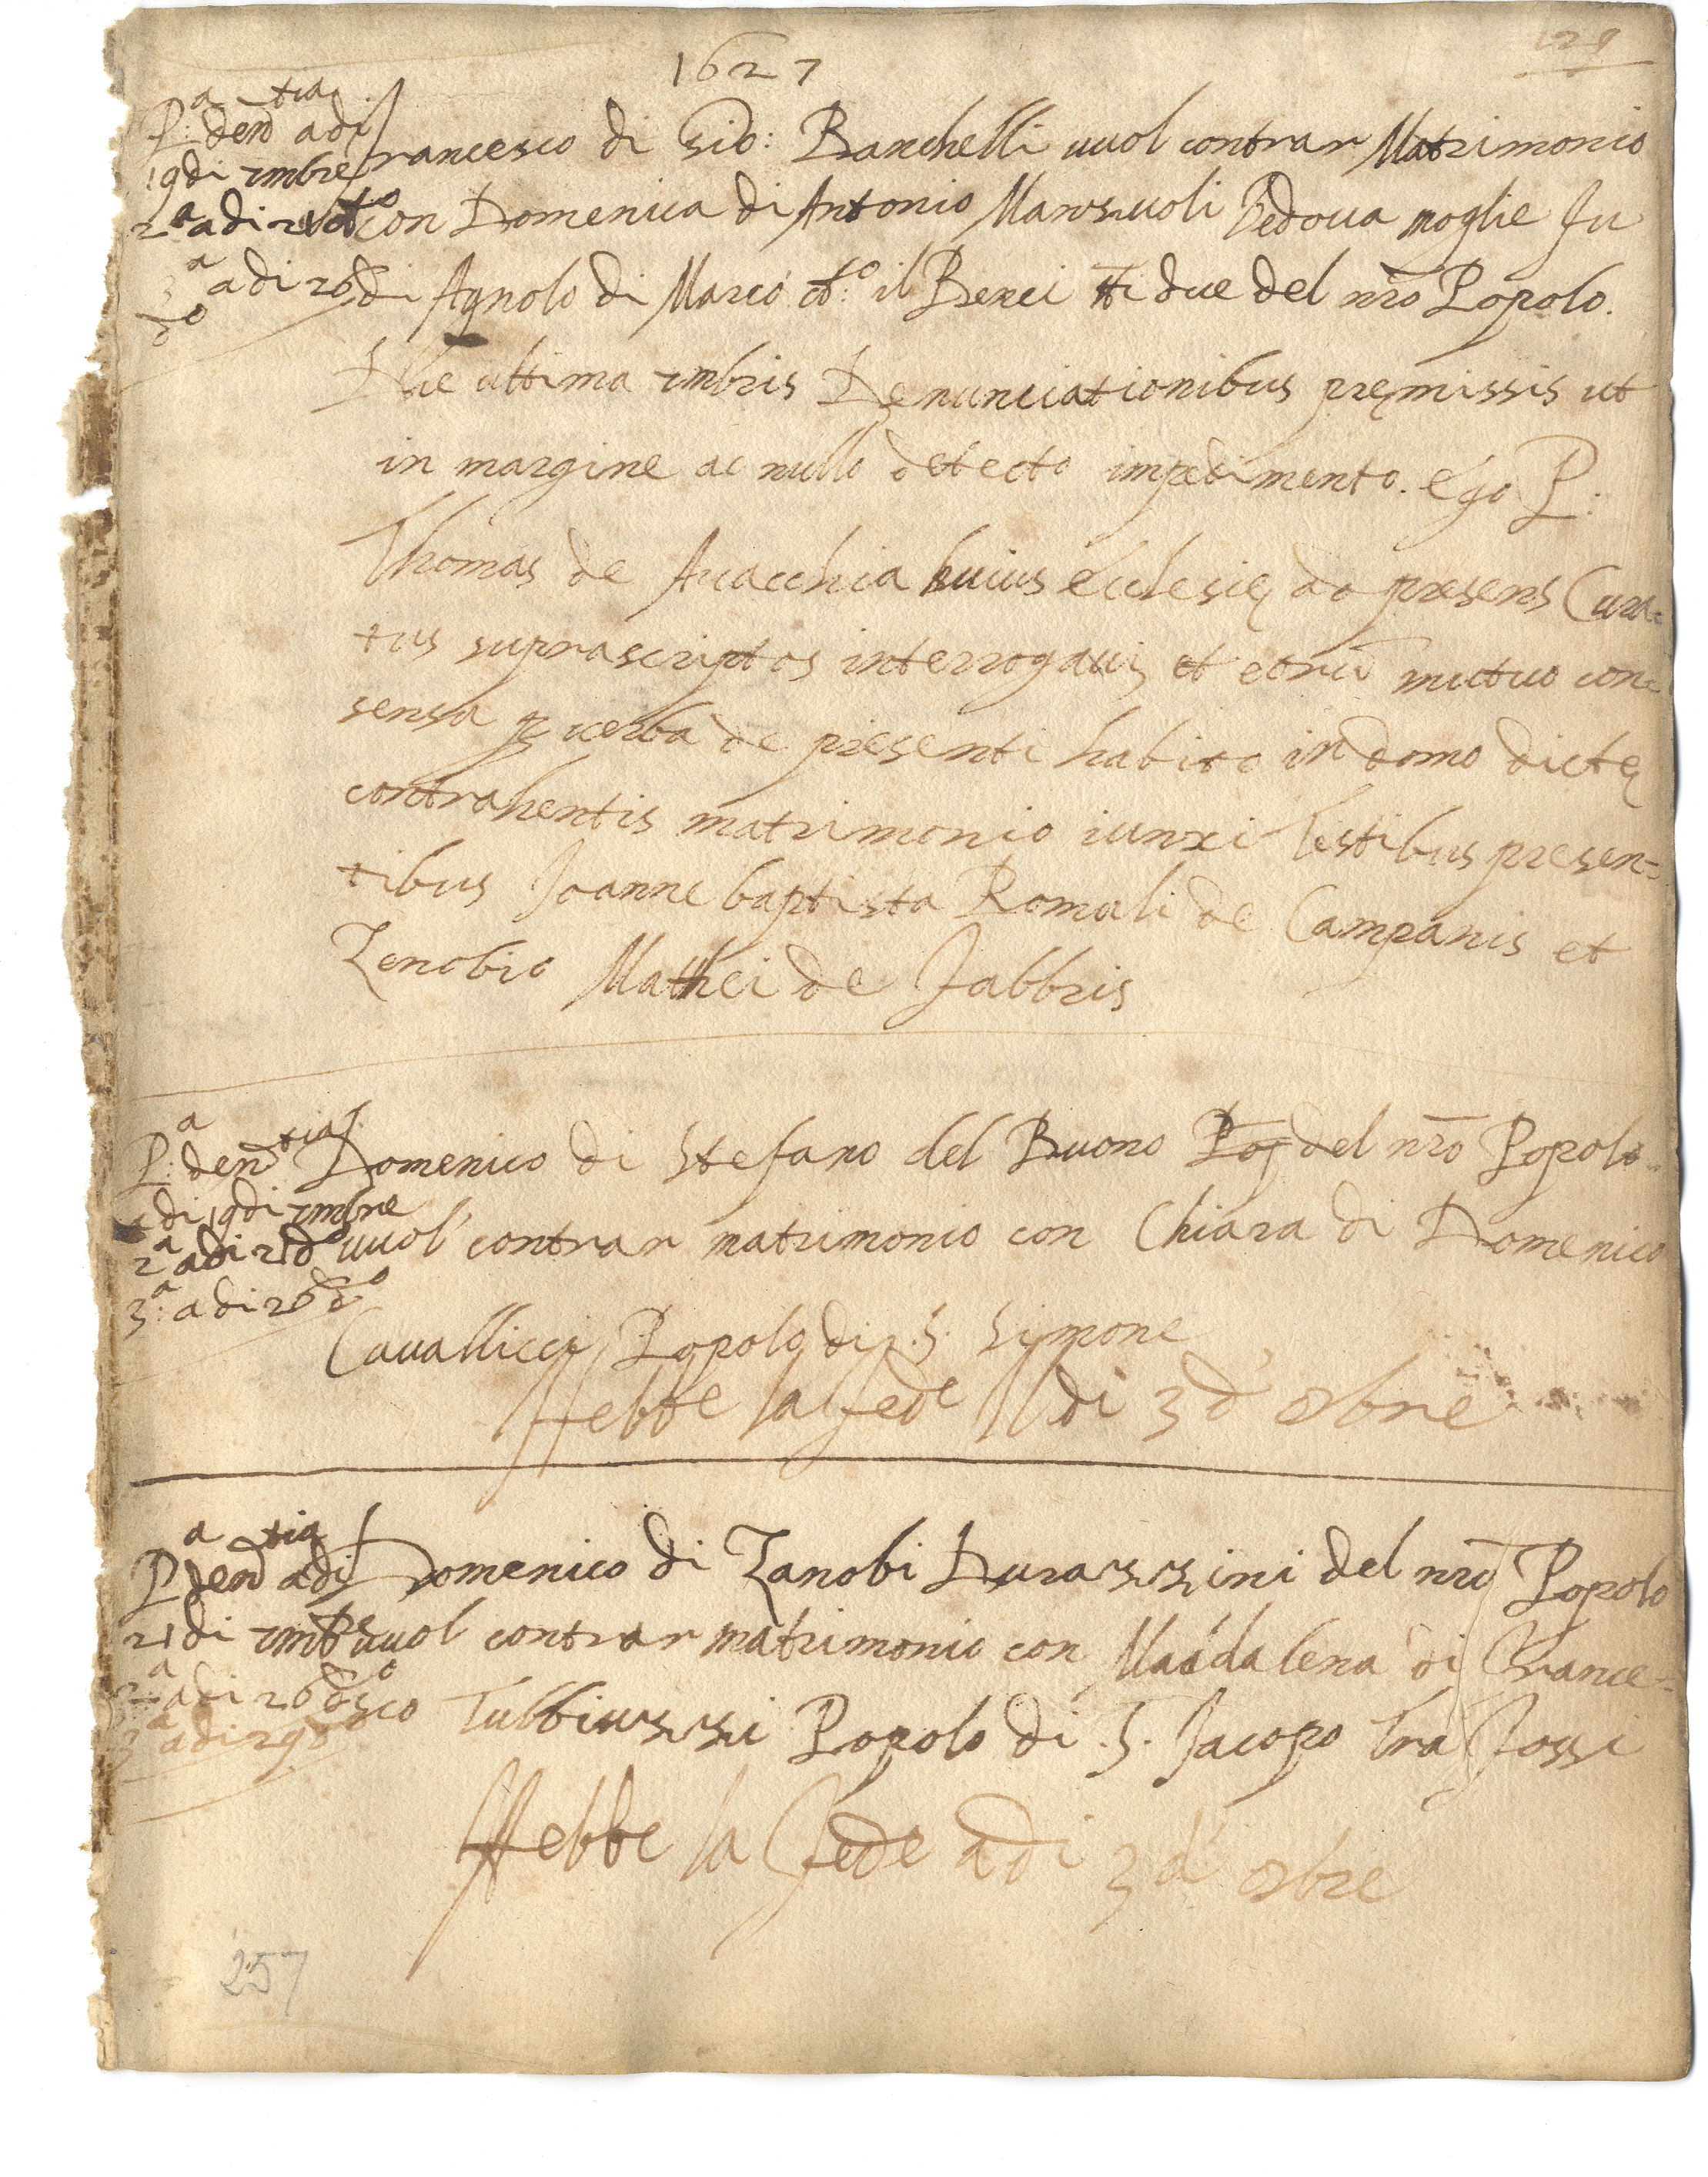 1627
129
P:a dentia adi
19 di 7mbre
2a adi 21 do
3a adi 26 di
do
Francesco di Gio: Banchelli vuol contrar Matrimonio
con Domenica di Antonio Manzuoli Vedova moglie fu
di Agnolo di Marco do: il Benci tti due del nro Popolo.
Die ultima 7mbris Denunciationibus pręmissis ut
in margine ac nullo detecto impedimento. ego P:
Thomas de Avacchia huius ecclesię ad presens Cura=
tus suprascriptos interrogavi, et eorū mutuo con=
sensu p verba de presenti habito in domo dictę
contrahentis matrimonio iunxi Testibus presen=
tibus Joanne baptista Romuli de Campanis et
Zenobio Mathei de Fabbris
P:a dentia
adi 19 di 7mbre
2a adi 21 do
3a: adi 26 do
Domenico di Stefano del Buono Pop del nro Popolo
vuol contrar matrimonio con Chiara di Domenico
Cavallicci Popolo di .S. Simone
Hebbe la fede di 3 d' 8bre
Pa dentia adi
21 di 7mbre
2a adi 26 do
3a adi 29 do
Domenico di Zanobi Durazzini del nro Popolo
vuol contrar matrimonio con Maddalena di France=
sco Tubbiuzzi Popolo di .S. Jacopo tra fossi
Hebbe la fede adi 3 d' 8bre
257